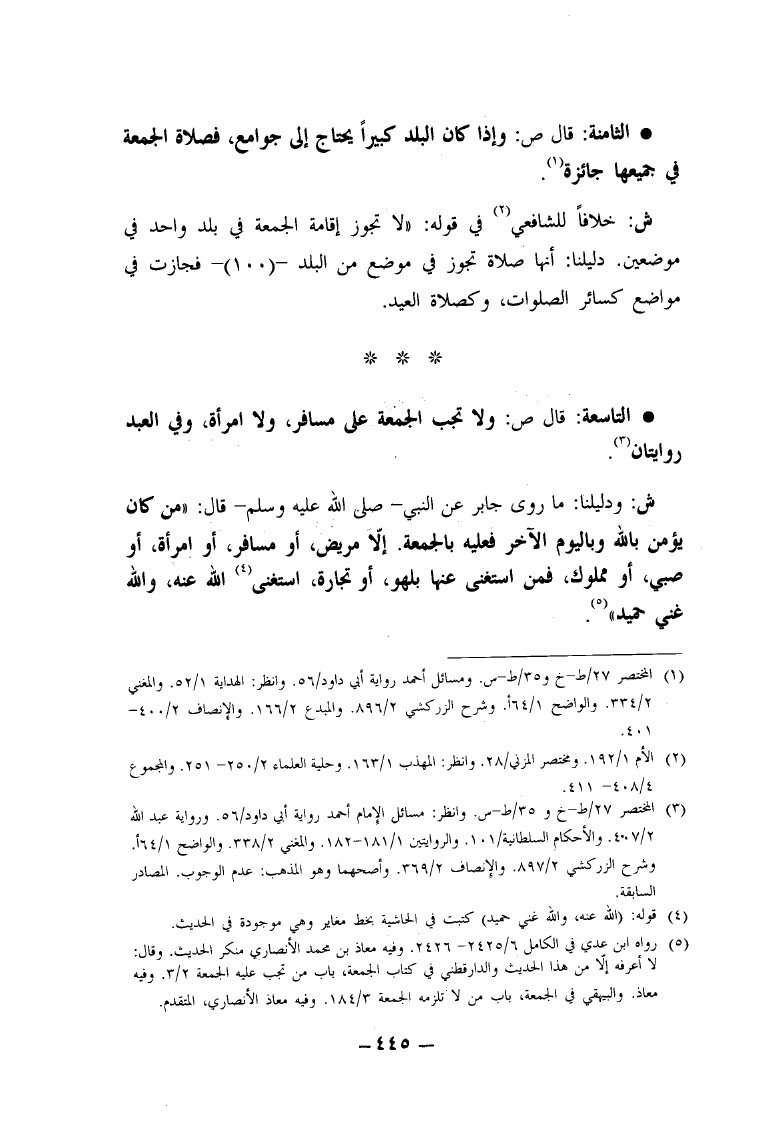 ● الثامنة: قال ص: وإذا كان البلد كبيراً يحتاج إلى جوامع، فصلاة الجمعة
في جميعها جائزة(١).
ش: خلافاً للشافعي(٢) في قوله: «لا تجوز إقامة الجمعة في بلد واحد في
موضعين. دليلنا: أنها صلاة تجوز في موضع من البلد –(١٠٠)– فجازت في
مواضع كسائر الصلوات، وكصلاة العيد.
* * *
● التاسعة: قال ص: ولا تجب الجمعة على مسافر، ولا امرأة، وفي العبد
روايتان(٣).
ش: ودليلنا: ما روى جابر عن النبي– صلى الله عليه وسلم– قال: «من كان
يؤمن بالله وباليوم الآخر فعليه بالجمعة. إلّا مريض، أو مسافر، أو امرأة، أو
صبي، أو مملوك، فمن استغنى عنها بلهو، أو تجارة، استغنى(٤) الله عنه، والله
غني حميد»(٥).
(١) المختصر ٢٧/ط–خ و٣٥/ط–س. ومسائل أحمد رواية أبي داود/٥٦. وانظر: الهداية ٥٢/١. والمغني
٣٣٤/٢. والواضح ٦٤/١أ. وشرح الزركشي ٨٩٦/٢. والمبدع ١٦٦/٢. والإنصاف ٤٠٠/٢–
٤٠١.
(٢) الأم ١٩٢/١. ومختصر المزني/٢٨. وانظر: المهذب ١٦٣/١. وحلية العلماء ٢٥٠/٢– ٢٥١. والمجموع
٤٠٨/٤– ٤١١.
(٣) المختصر ٢٧/ط–خ و ٣٥/ط–س. وانظر: مسائل الإمام أحمد رواية أبي داود/٥٦. ورواية عبد الله
٤٠٧/٢. والأحكام السلطانية/١٠١. والروايتين ١٨١/١–١٨٢. والمغني ٣٣٨/٢. والواضح ٦٤/١أ.
وشرح الزركشي ٨٩٧/٢. والإنصاف ٣٦٩/٢. وأصحهما وهو المذهب: عدم الوجوب. المصادر
السابقة.
(٤) قوله: (الله عنه، والله غني حميد) كتبت في الحاشية بخط مغاير وهي موجودة في الحديث.
(٥) رواه ابن عدي في الكامل ٢٤٢٥/٦– ٢٤٢٦. وفيه معاذ بن محمد الأنصاري منكر الحديث. وقال:
لا أعرفه إلّا من هذا الحديث والدارقطني في كتاب الجمعة، باب من تجب عليه الجمعة ٣/٢. وفيه
معاذ. والبيهقي في الجمعة، باب من لا تلزمه الجمعة ١٨٤/٣. وفيه معاذ الأنصاري، المتقدم.
– ٤٤٥ –